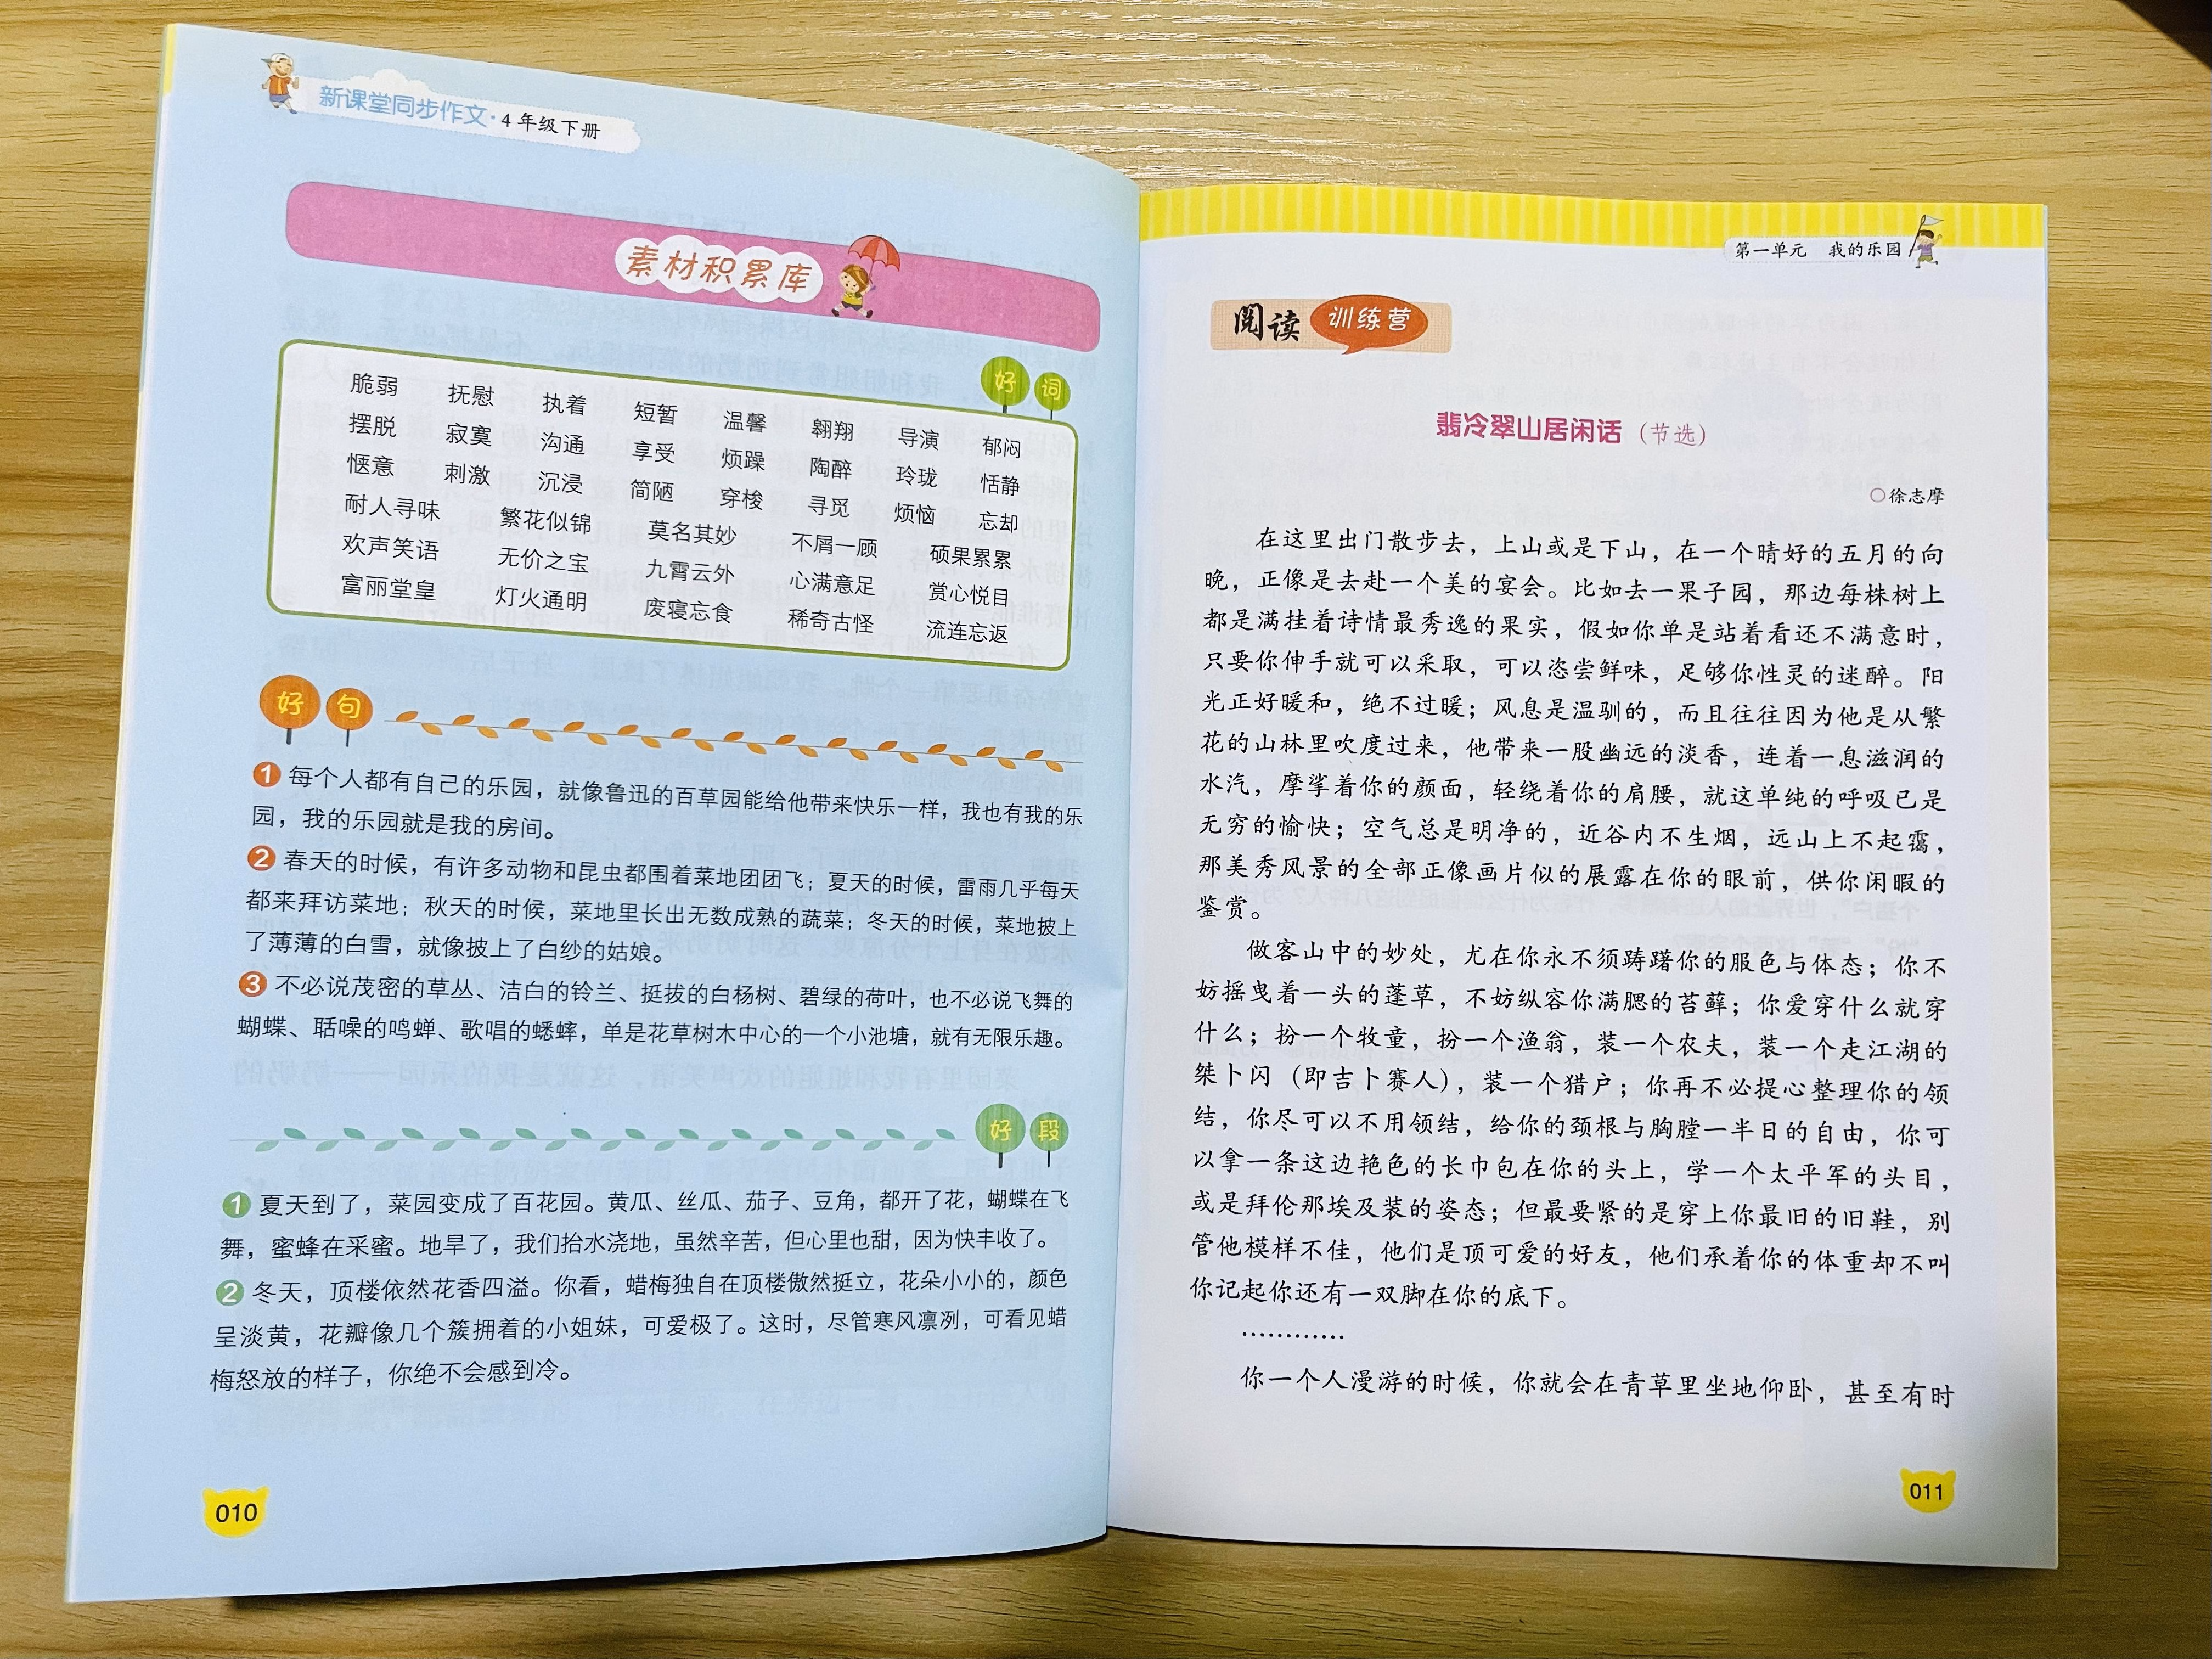 新课堂同步作文·4年级下册
素材积累库
好词
脆弱 抚慰 执着 短暂 温馨 翱翔 导演 郁闷
摆脱 寂寞 沟通 享受 烦躁 陶醉 玲珑 恬静
惬意 刺激 沉浸 简陋 穿梭 寻觅 烦恼 忘却
耐人寻味 繁花似锦 莫名其妙 不屑一顾 硕果累累
欢声笑语 无价之宝 九霄云外 心满意足 赏心悦目
富丽堂皇 灯火通明 废寝忘食 稀奇古怪 流连忘返
好句
1 每个人都有自己的乐园，就像鲁迅的百草园能给他带来快乐一样，我也有我的乐
园，我的乐园就是我的房间。
2 春天的时候，有许多动物和昆虫都围着菜地团团飞；夏天的时候，雷雨几乎每天
都来拜访菜地；秋天的时候，菜地里长出无数成熟的蔬菜；冬天的时候，菜地披上
了薄薄的白雪，就像披上了白纱的姑娘。
3 不必说茂密的草丛、洁白的铃兰、挺拔的白杨树、碧绿的荷叶，也不必说飞舞的
蝴蝶、聒噪的鸣蝉、歌唱的蟋蟀，单是花草树木中心的一个小池塘，就有无限乐趣。
好段
1 夏天到了，菜园变成了百花园。黄瓜、丝瓜、茄子、豆角，都开了花，蝴蝶在飞
舞，蜜蜂在采蜜。地旱了，我们抬水浇地，虽然辛苦，但心里也甜，因为快丰收了。
2 冬天，顶楼依然花香四溢。你看，蜡梅独自在顶楼傲然挺立，花朵小小的，颜色
呈淡黄，花瓣像几个簇拥着的小姐妹，可爱极了。这时，尽管寒风凛冽，可看见蜡
梅怒放的样子，你绝不会感到冷。
010
第一单元 我的乐园
阅读训练营
翡冷翠山居闲话（节选）
○徐志摩
在这里出门散步去，上山或是下山，在一个晴好的五月的向
晚，正像是去赴一个美的宴会。比如去一果子园，那边每株树上
都是满挂着诗情最秀逸的果实，假如你单是站着看还不满意时，
只要你伸手就可以采取，可以恣尝鲜味，足够你性灵的迷醉。阳
光正好暖和，绝不过暖；风息是温驯的，而且往往因为他是从繁
花的山林里吹度过来，他带来一股幽远的淡香，连着一息滋润的
水汽，摩挲着你的颜面，轻绕着你的肩腰，就这单纯的呼吸已是
无穷的愉快；空气总是明净的，近谷内不生烟，远山上不起霭，
那美秀风景的全部正像画片似的展露在你的眼前，供你闲暇的
鉴赏。
做客山中的妙处，尤在你永不须踌躇你的服色与体态；你不
妨摇曳着一头的蓬草，不妨纵容你满腮的苔藓；你爱穿什么就穿
什么；扮一个牧童，扮一个渔翁，装一个农夫，装一个走江湖的
桀卜闪（即吉卜赛人），装一个猎户；你再不必提心整理你的领
结，你尽可以不用领结，给你的颈根与胸膛一半日的自由，你可
以拿一条这边艳色的长巾包在你的头上，学一个太平军的头目，
或是拜伦那埃及装的姿态；但最要紧的是穿上你最旧的旧鞋，别
管他模样不佳，他们是顶可爱的好友，他们承着你的体重却不叫
你记起你还有一双脚在你的底下。
…………
你一个人漫游的时候，你就会在青草里坐地仰卧，甚至有时
011